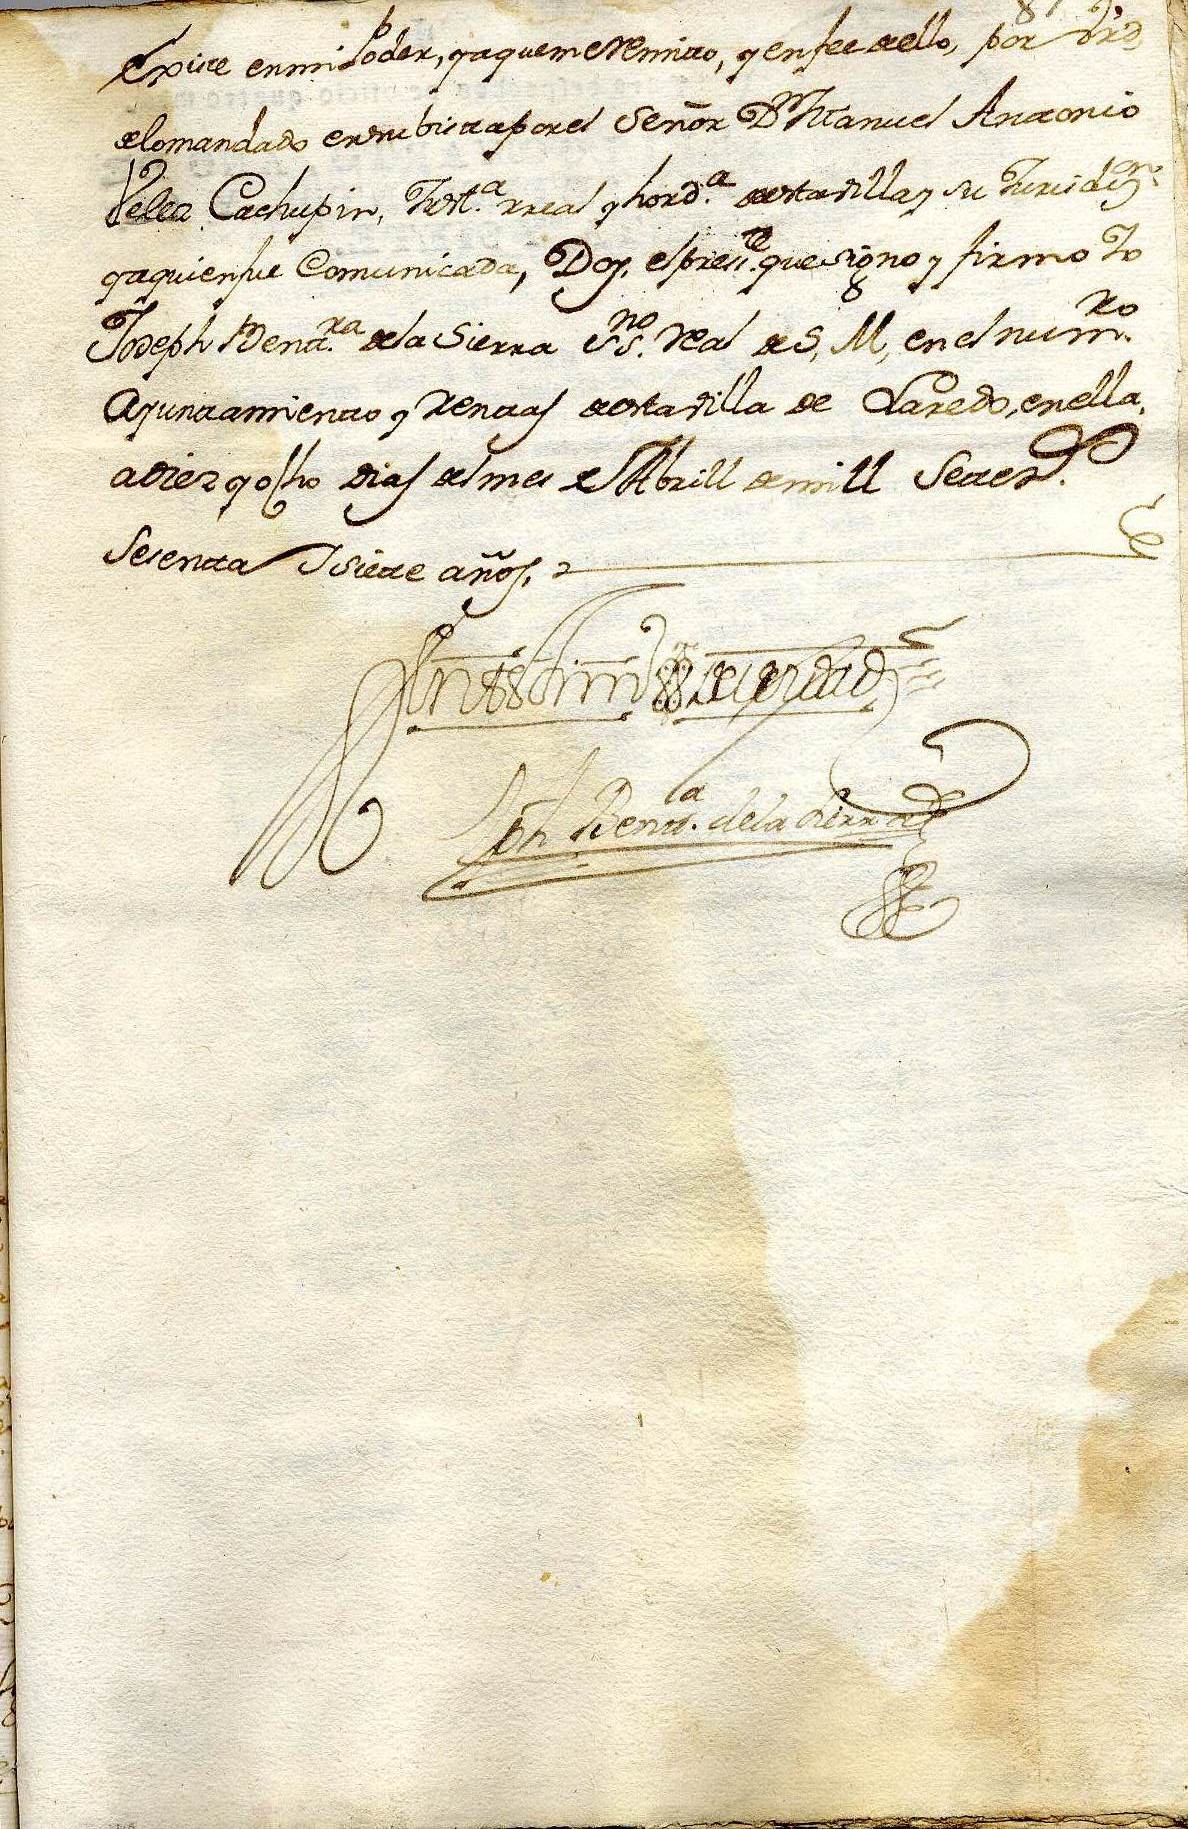 Existe en mi Poder, y a que me Remito, y en fee de ello, por
de lo mandado en su bista por el Señor Dn Manuel Antonio
Velez Cachupin, Justa. rreal y hordª. de esta villa y su Jurisdizon.
y a quien fue Comunicada, Doy, el preste. que signo y firmo Yo
Joseph Bentra. de la Sierra Ssno. Real de S, M, en el numro.
Ayuntamiento y Rentas de esta villa de Laredo, en ella,
a diez y ocho dias del mes de Abrill de mill Setezos.
Sesenta Y siete años,
En testimo de verdad
Jph Bentª. de la Sierra